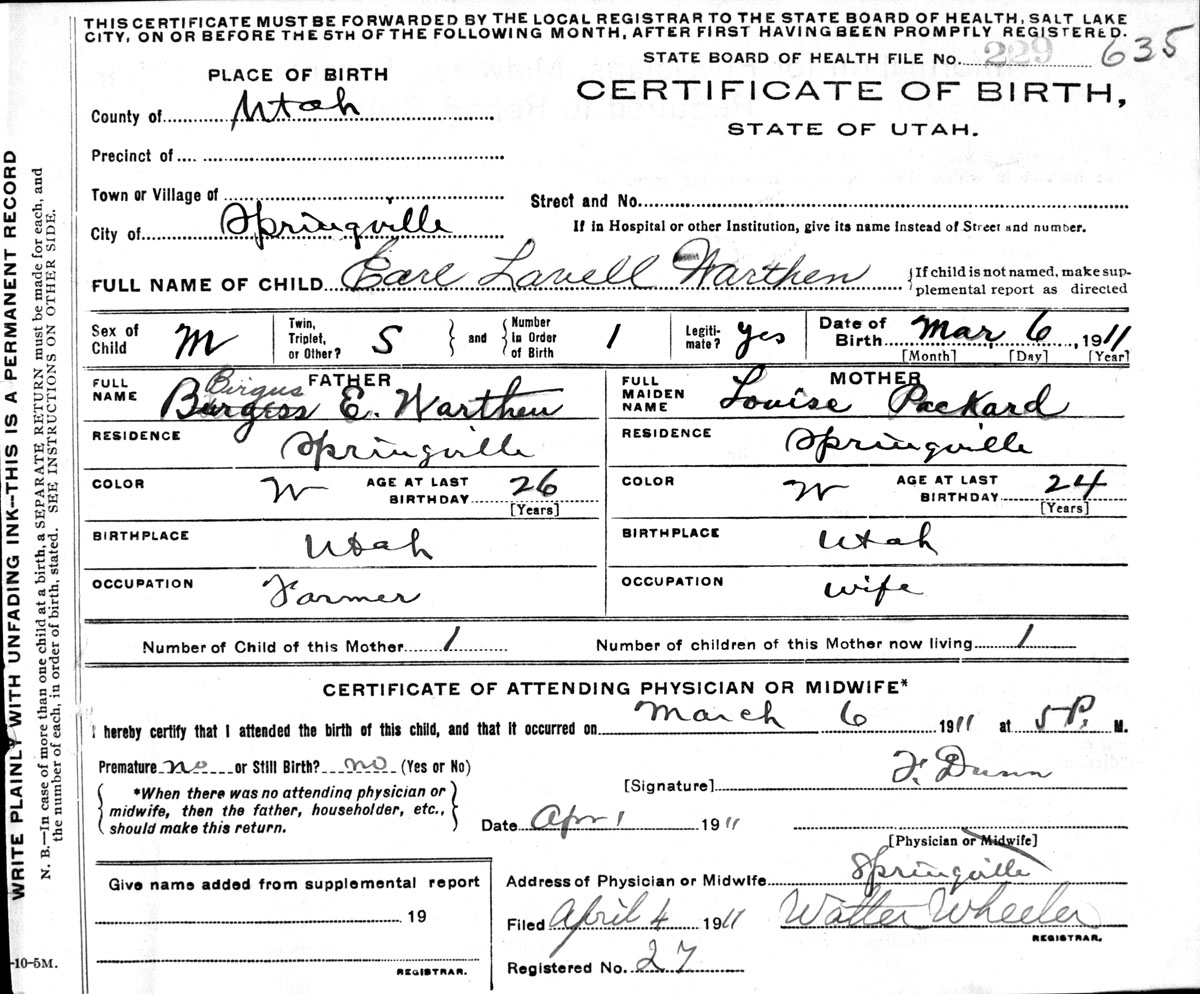 THIS CERTIFICATE MUST BE FORWARDED BY THE LOCAL REGISTRAR TO THE STATE BOARD OF HEALTH, SALT LAKE
CITY, ON OR BEFORE THE 5TH OF THE FOLLOWING MONTH, AFTER FIRST HAVING BEEN PROMPTLY REGISTERED.
STATE BOARD OF HEALTH FILE No. 229 635
PLACE OF BIRTH
CERTIFICATE OF BIRTH,
STATE OF UTAH.
County of Utah
Precinct of
Town or Village of
Street and No.
City of Springville
If in Hospital or other Institution, give its name instead of Street and number.
FULL NAME OF CHILD Earl Lavell Warthen
{If child is not named, make sup-
plemental report as directed
Sex of Child M
Twin, Triplet, or Other? S } and { Number In Order of Birth 1
Legiti-mate? yes
Date of Birth Mar 6, 1911
[Month] [Day] [Year]
FATHER
FULL NAME Burgess E. Warthen
Birgus
RESIDENCE Springville
COLOR W AGE AT LAST BIRTHDAY 26
[Years]
BIRTHPLACE Utah
OCCUPATION Farmer
MOTHER
FULL MAIDEN NAME Louise Packard
RESIDENCE Springville
COLOR W AGE AT LAST BIRTHDAY 24
[Years]
BIRTHPLACE Utah
OCCUPATION wife
Number of Child of this Mother 1 Number of children of this Mother now living 1
CERTIFICATE OF ATTENDING PHYSICIAN OR MIDWIFE*
I hereby certify that I attended the birth of this child, and that it occurred on March 6 1911 at 5 P. M.
Premature no or Still Birth? no (Yes or No)
{ *When there was no attending physician or
midwife, then the father, householder, etc.,
should make this return. }
[Signature] F. Dunn
Date Apr 1 1911
[Physician or Midwife]
Address of Physician or Midwife Springville
Give name added from supplemental report
19
REGISTRAR.
Filed April 4 1911 Walter Wheeler
REGISTRAR.
Registered No. 27
WRITE PLAINLY WITH UNFADING INK--THIS IS A PERMANENT RECORD
N. B.—In case of more than one child at a birth, a SEPARATE RETURN must be made for each, and
the number of each, in order of birth, stated. SEE INSTRUCTIONS ON OTHER SIDE.
-10-5M.